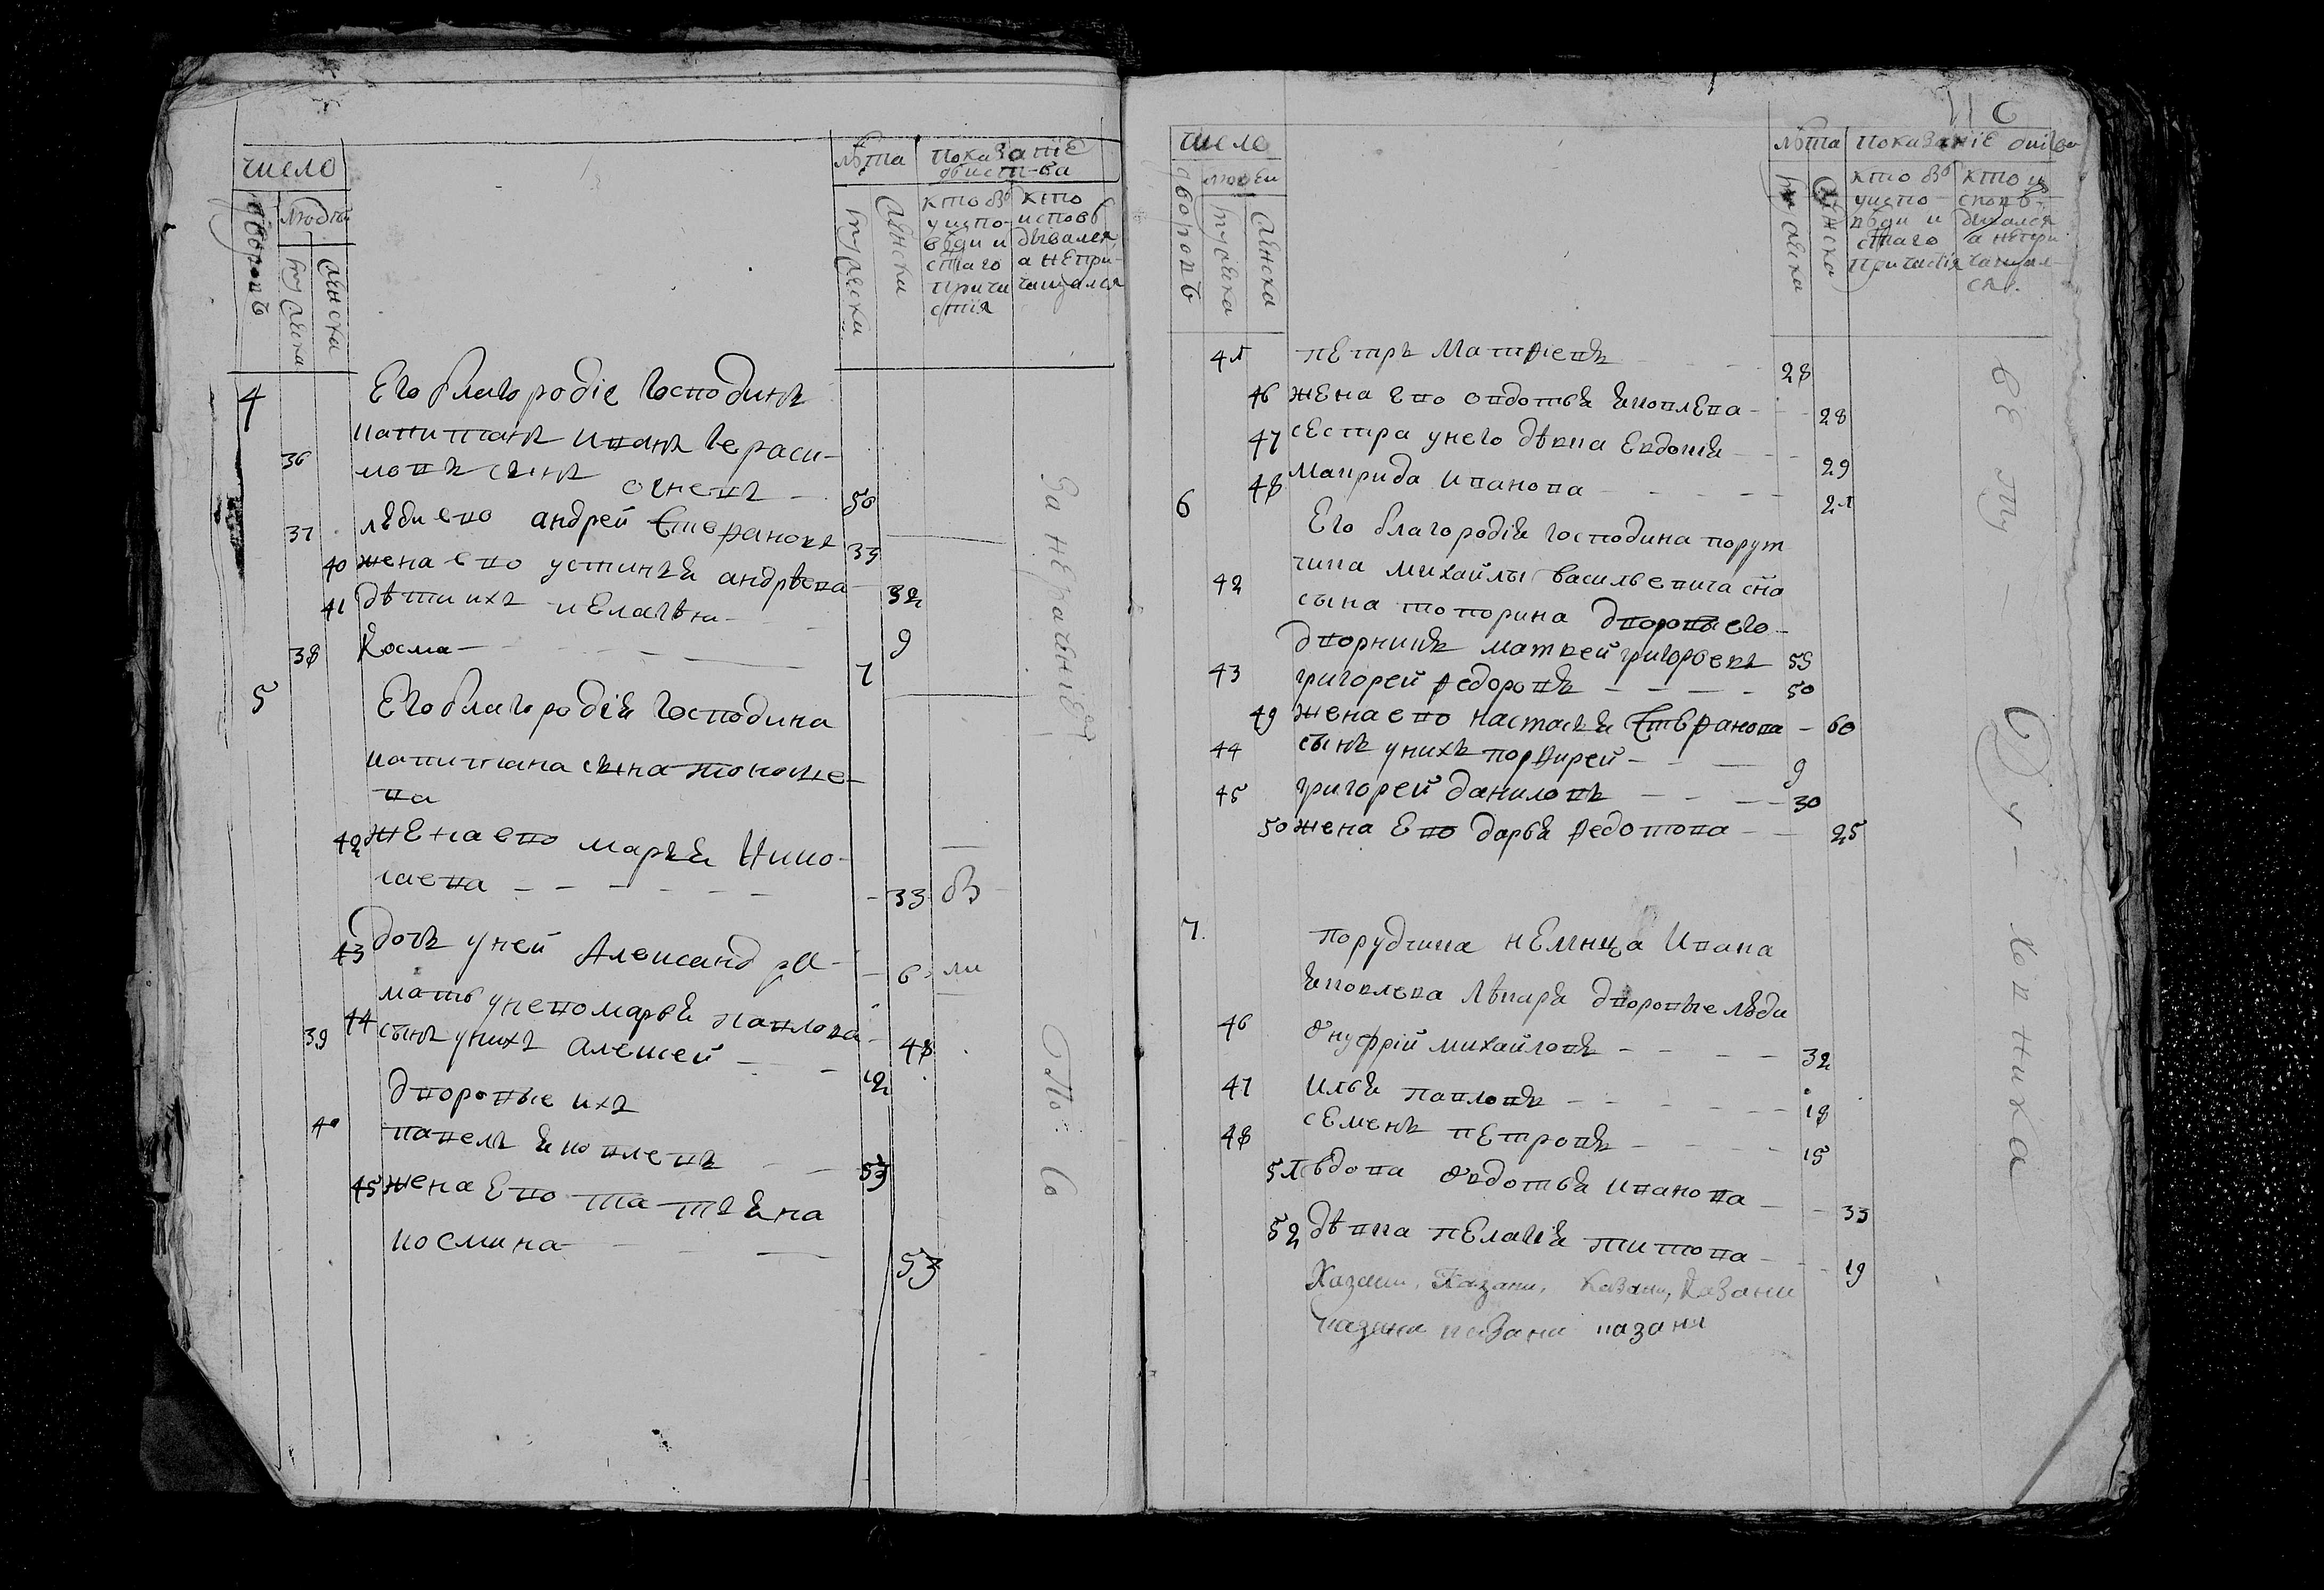 число
дворовъ
людъ
мужска
женска
лѣта
мужска
женска
показание
кто во
у испо-
вѣди и
стаго
причи
стия
кто
исповѣ
дывался
а непри-
чащался
4
Его благородіе господинъ
36 капитанъ Иванъ Гераси-
мовъ сынъ 50
37 люди ево андрей Стефановъ 39
40 жена ево устинья андрѣева 32
41 дѣти ихъ пелагѣя 9
38 Косма 7
5
Его благородія господина
капитана сына
ва
42 жена ево марья Нико-
лаева 33 бв
43 дочь у ней Александра 6 ли
44 мать у нево марья павлова 48
39 сынъ у нихъ алексей 12
дворовые ихъ
40 павелъ яковлевъ 53
45 жена Ево татьяна
космина 53
За нерачение
По Со
числе
дворовъ
людеи
мужска
женска
лѣта
мужска
женска
показание
кто во
у испо-
вѣди и
стаго
причастія
кто и
сповѣ-
дывался
а непри
чащал-
ся.
41 петръ Матфіевъ 28
46 жена Ево овдотья яковлева 28
47 сестра у него дѣвка Евдокія 29
48 Маврида Иванова 21
6
Его благородія господина порут
чика михайлы васильевича
42 сына топорина дворовы его
дворникъ матвей григорьевъ 59
43 григорей федоровъ 50
49 жена ево настасья Стефанова 60
44 сынъ у нихъ порфирей 9
45 григорей даниловъ 30
50 жена Ево дарья федотова 25
7.
порудчика немца Ивана
яковлева дворовые люди
46 Онуфрій михайловъ 32
47 илья павловъ 18
48 семенъ петровъ 15
51 вдова овдотья иванова 33
52 дѣвка пелагія титова 19
Казани, Казани, Казани, Казани
казани казани казани
ве ту
Ду - ховника